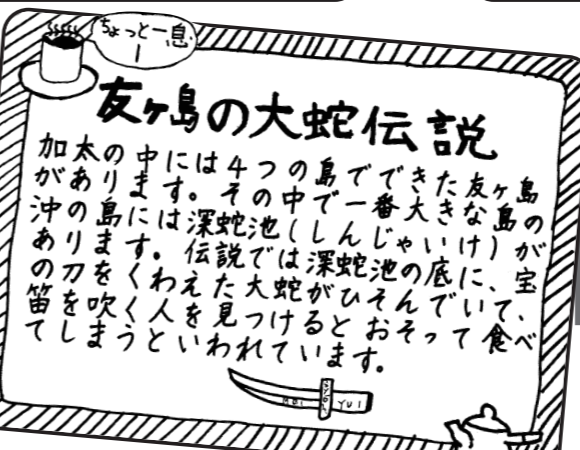 ちょっと一息
ー
友ヶ島の大蛇伝説
加太の中には4つの島でできた友ヶ島
があります。その中で一番大きな島の
沖の島には深蛇池(しんじゃいけ)が
あります。伝説では深蛇池の底に、宝
の刀をくわえた大蛇がひそんでいて、
笛を吹く人を見つけるとおそって食べ
てしまうといわれています。
YUI